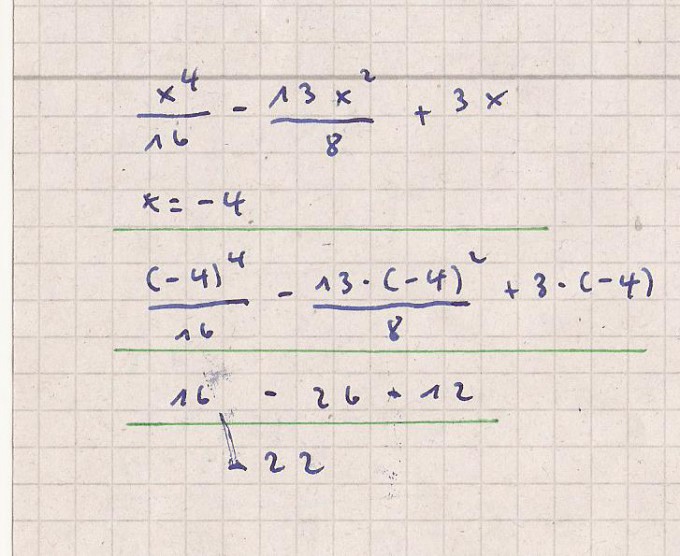 x⁴/16 - 13x²/8 + 3x
x = -4
(-4)⁴/16 - 13·(-4)²/8 + 3·(-4)
16 - 26 - 12
- 22